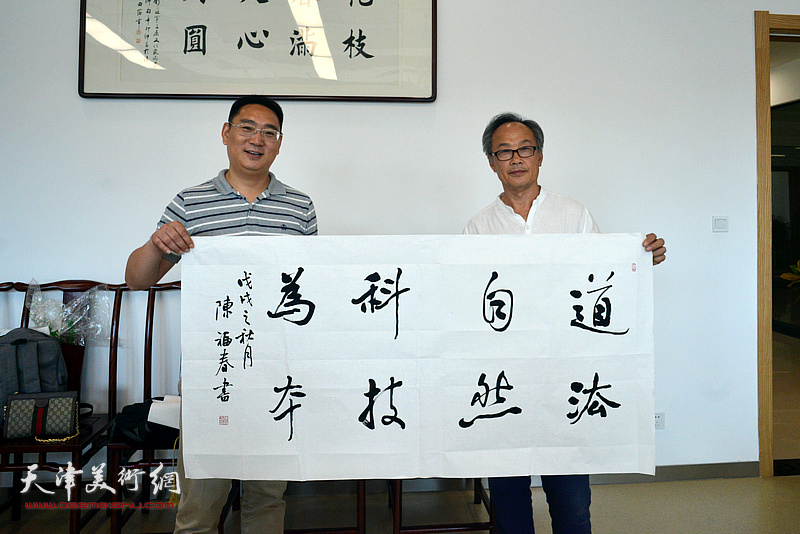 道法
自然
科技
為本
戊戌之秋月
陳福春書
花枝
春滿
天心
月圓
天津美術網